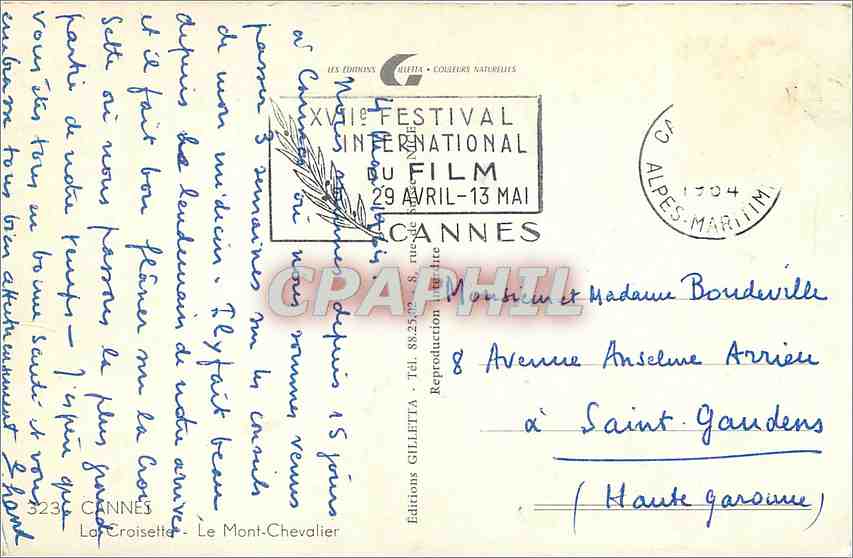 LES ÉDITIONS GILLETTA • COULEURS NATURELLES
XVIIe FESTIVAL
INTERNATIONAL
DU FILM
29 AVRIL-13 MAI
CANNES
CA
1964
ALPES-MARITIM.
4 Mai 1964.
Nous sommes depuis 15 jours
à Cannes où nous sommes venus
passer 3 semaines sur les conseils
de mon médecin. Il y fait beau
depuis le lendemain de notre arrivée
et il fait bon flâner sur la Croi
sette où nous passons la plus grande
partie de notre temps - J'espère que
vous êtes tous en bonne santé et vous
embrasse tous bien affectueusement
Monsieur et Madame Boudeville
8 Avenue Anselme Arrieu
à Saint-Gaudens
(Haute Garonne)
Éditions GILLETTA - Tél. 88.25.02 - 8, rue de NICE
Reproduction interdite
CPAPHIL
323 CANNES
La Croisette - Le Mont-Chevalier